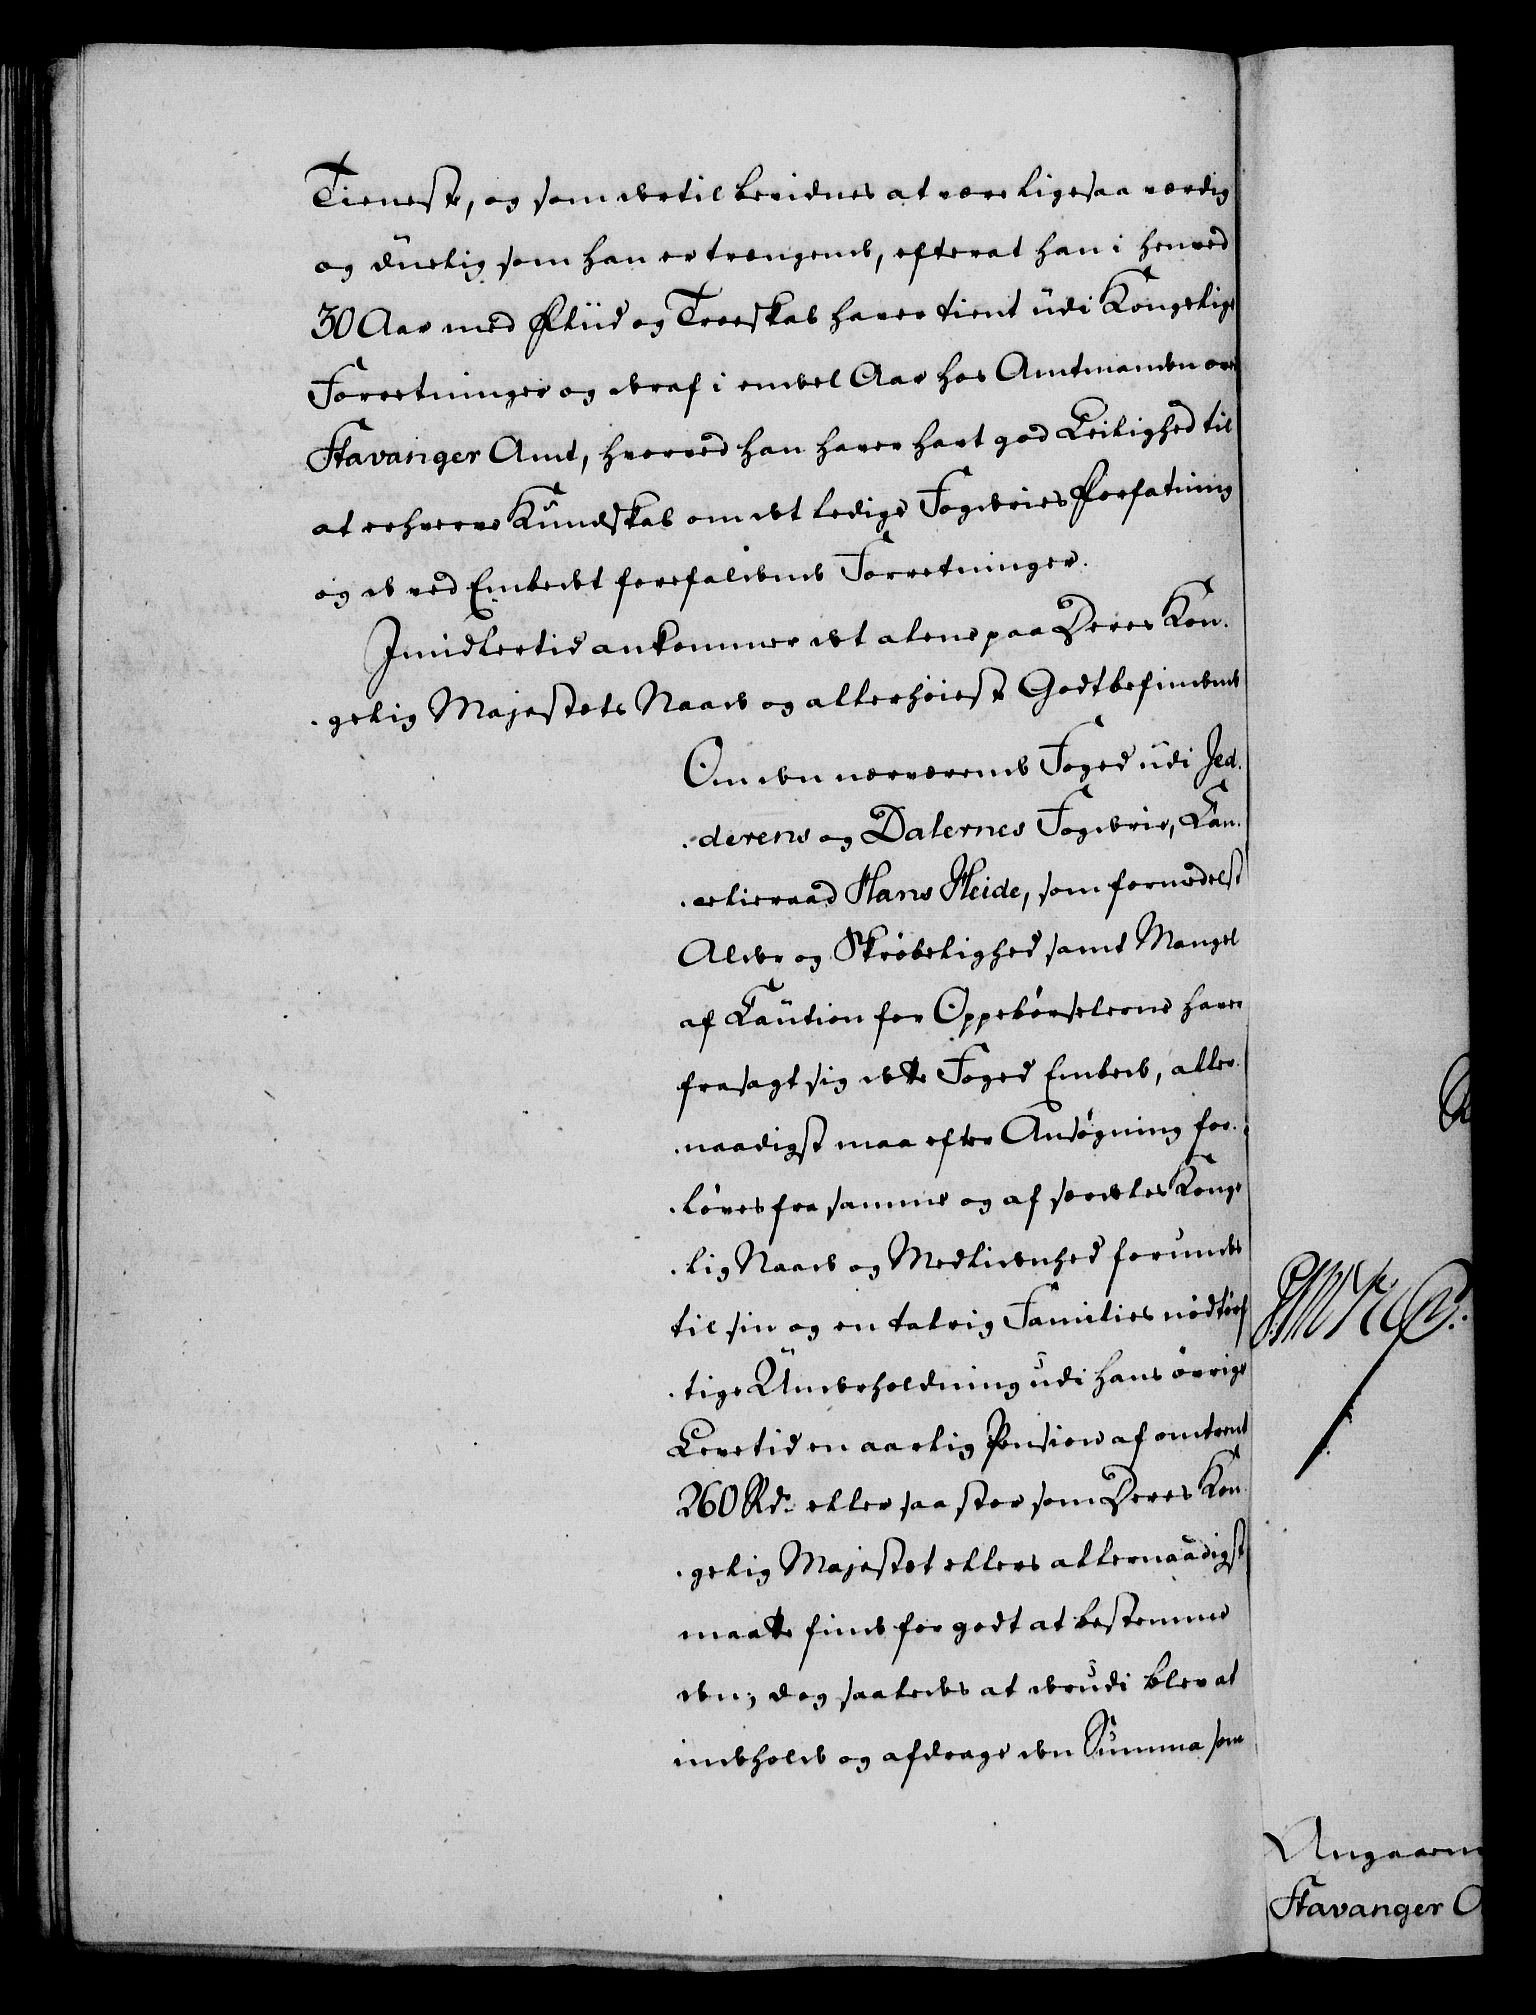 Tieneste, og som dertil bevidnes at være ligesaa værdig
og duelig som han er trængende, efterat han i henved
30 Aar med Fliid og Troeskab haver tient udi Kongelige
Forretninger og deraf i endeel Aar hos Amtmanden over
Stavanger Amt, hvorved han haver havt god Leilighed til
at erhverve Kundskab om det ledige Fogderies Forfatning
og de ved Embedet forefaldende Forretninger.
Imidlertid ankommer det alene paa Deres Kon-
-gelig Majestets Naade og allerhöieste Godtbefindende
Om den nærværende Foged udi Jed-
-derens og Dalernes Fogderie, Can-
-cellieraad Hans Heide, som formedelst
Alder og Skröbelighed samt Mangel
af Caution for Oppebörselerne haver
frasagt sig dette Foged Embede, aller-
-naadigst maa efter Ansögning for-
-löves fra samme og af særdeles Konge-
-lig Naade og Medlidenhed forundes
til sin og en talrig Families nödtörf-
-tige Underholdning udi hans övrige
Levetid en aarlig Pension af omtrent
260 Rd. eller saa stor som Deres Kon-
-gelig Majestet ellers allernaadigst
maatte finde for godt at bestemme
den; dog saaledes at derudi blev at
indeholde og afdrage den Summa som
Angaaen
Stavanger